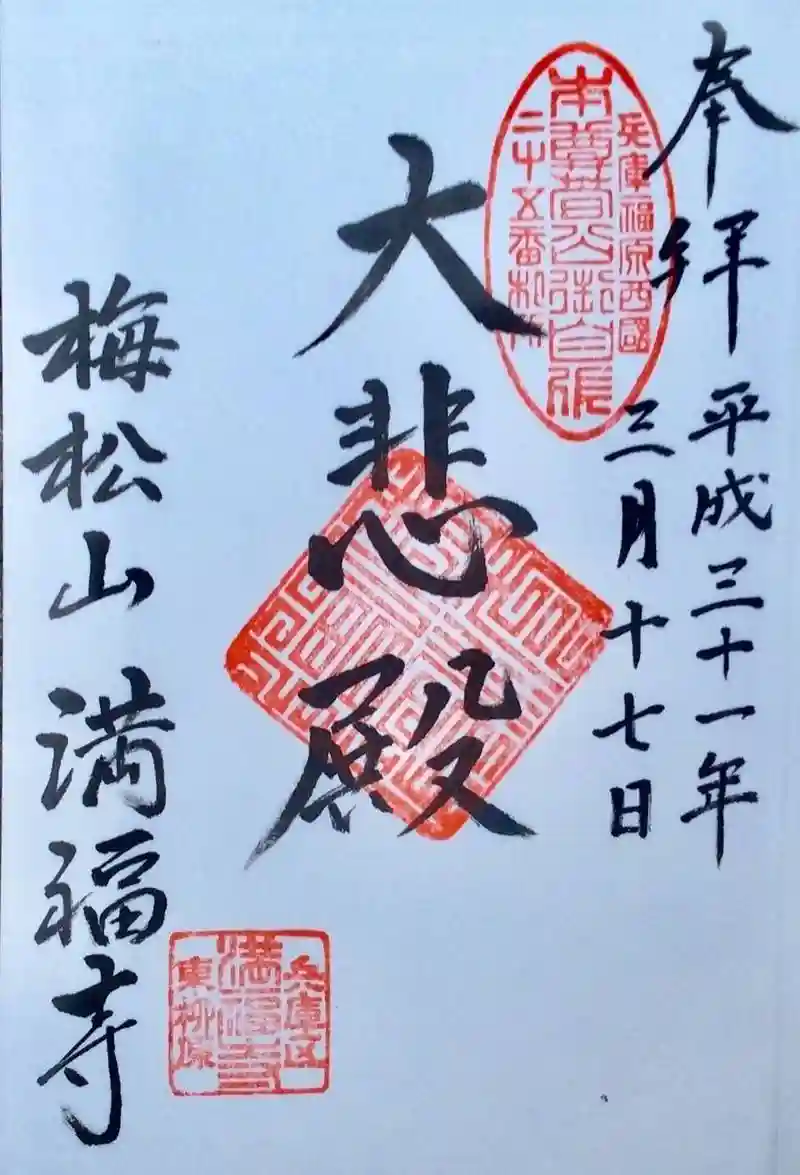 奉拝
平成三十一年
三月十七日
兵庫福原西國
本尊菅公御自作
二十五番札所
大悲殿
梅松山 満福寺
兵庫区
満福寺
東柳原